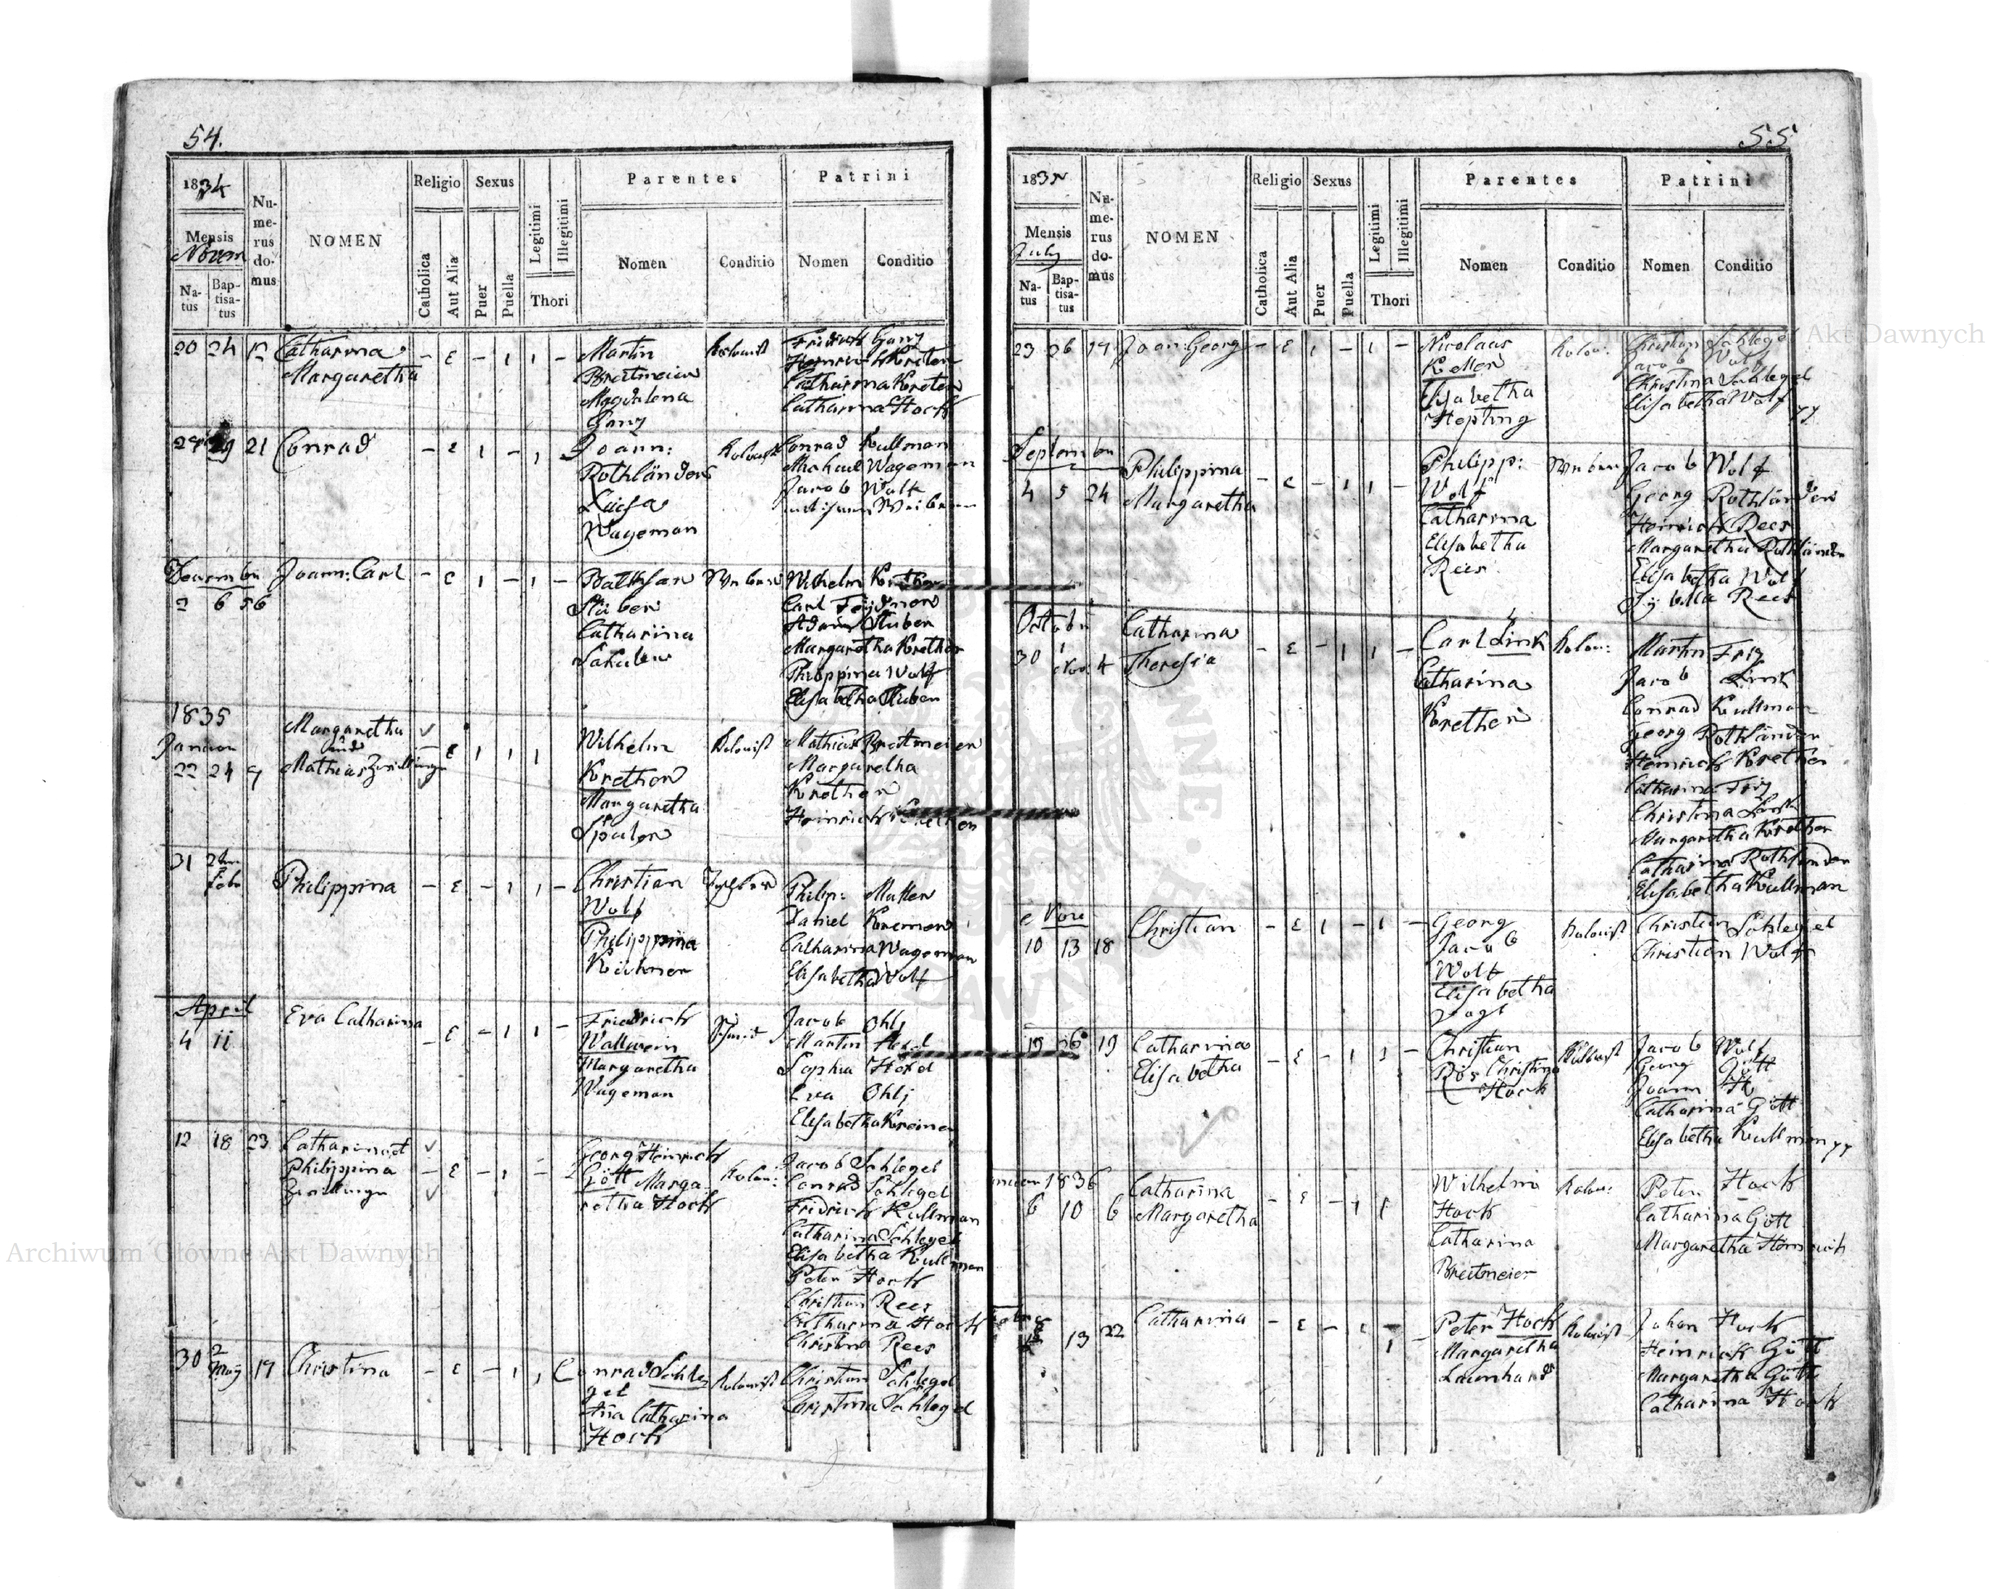 54.
1834
Mensis
Novem
Na-
tus
Bap-
tisa-
tus
Nu-
me-
rus
do-
mus
NOMEN
Religio
Catholica
Aut Alia
Sexus
Puer
Puella
Legitimi
Illegitimi
Thori
Parentes
Nomen
Conditio
Patrini
Nomen
Conditio
20 24 12 Catharina
Margaretha
Martin
Breitmeier
Magdalena
Ganz
Kolonist
Fridrich Ganz
Heinrich Kreter
Catharina Kreter
Catharina Hock
29 21 Conrad
Joann:
Rothländer
Luisa
Wageman
Kolonist
Conrad Kullman
Michael Wageman
Jacob Wolf
December
2 6 56
Joann: Carl
Balthsar
Stuber
Catharina
Weber
Wilhelm Krether
Carl
Adam Stuber
Margaretha Krether
Philippina Wolf
Elisabetha Stuber
1835
Januar
22 24 9
Margaretha
und
Mathias Zwillinge
Wilhelm
Krether
Margaretha
Spaler
Kolonist
Mathias Breitmeier
Margaretha
Krether
Heinrich Krether
31 2ten
Febr
Philippina
Christian
Wolf
Philippina
Kirchner
Philip: Muller
Daniel Kremer
Catharina Wageman
Elisabetha Wolf
April
4 11
Eva Catharina
Friedrich
Wallwein
Margaretha
Wageman
Schmid
Jacob Ohlj
Martin Hexel
Sophia Hexel
Eva Ohlj
Elisabetha Kreiner
12 18 23 Catharina et
Philippina
Zwillinge
Georg Heinrich
Gött Marga-
retha Hock
Kolon:
Jacob Schlegel
Conrad Schlegel
Fridrich Kullman
Catharina Schlegel
Elisabetha Kullman
Peter Hock
Christian Rees
Catharina Hock
Christina Rees
30 2
May 17 Christina
Conrad Schle
gel
Ana Catharina
Hock
Kolonist
Christian Schlegel
Christina Schlegel
55
1835
Mensis
July
Na-
tus
Bap-
tisa-
tus
Nu-
me-
rus
do-
mus
NOMEN
Religio
Catholica
Aut Alia
Sexus
Puer
Puella
Legitimi
Illegitimi
Thori
Parentes
Nomen
Conditio
Patrini
Nomen
Conditio
23 26 17 Joan: Georg
Nicolaus
Keller
Elisabetha
Hepting
Kolon:
Christian Schlegel
Jacob Wolf
Christina Schlegel
Elisabetha Wolf
September
4 5 24
Philippina
Margaretha
Philipp:
Wolf
Catharina
Elisabetha
Rees
Weber
Jacob Wolf
Georg Rothländer
Heinrich Rees
Margaretha Rothländer
Elisabetha Wolf
Sybilla Rees
October
30 1
Nov. 4
Catharina
Theresia
Carl Link
Catharina
Krether
Kolon:
Martin Friz
Jacob Link
Conrad Kullman
Georg Rothländer
Heinrich Krether
Catharina Friz
Christina Link
Margaretha Krether
Catharina Rothländer
Elisabetha Kullman
10 13 18
Christian
Georg
Jacob
Wolf
Elisabetha
Vogt
Kolonist
Christian Schlegel
Christian Wolf
15 16 19 Catharina
Elisabetha
Christian
Rös Christina
Hock
Kolonist
Jacob Wolf
Georg Gött
Joann H
Catharina Gött
Elisabetha Kullman
1836
6 10 6
Catharina
Margaretha
Wilhelm
Hock
Catharina
Breitmeier
Kolon:
Peter Hock
Catharina Gött
Margaretha Heinrich
13 22 Catharina
Peter Hock
Margaretha
Leonhard
Kolonist
Johan Hock
Heinrich Gött
Margaretha Gött
Catharina Hock
Archiwum Główne Akt Dawnych
Archiwum Główne Akt Dawnych